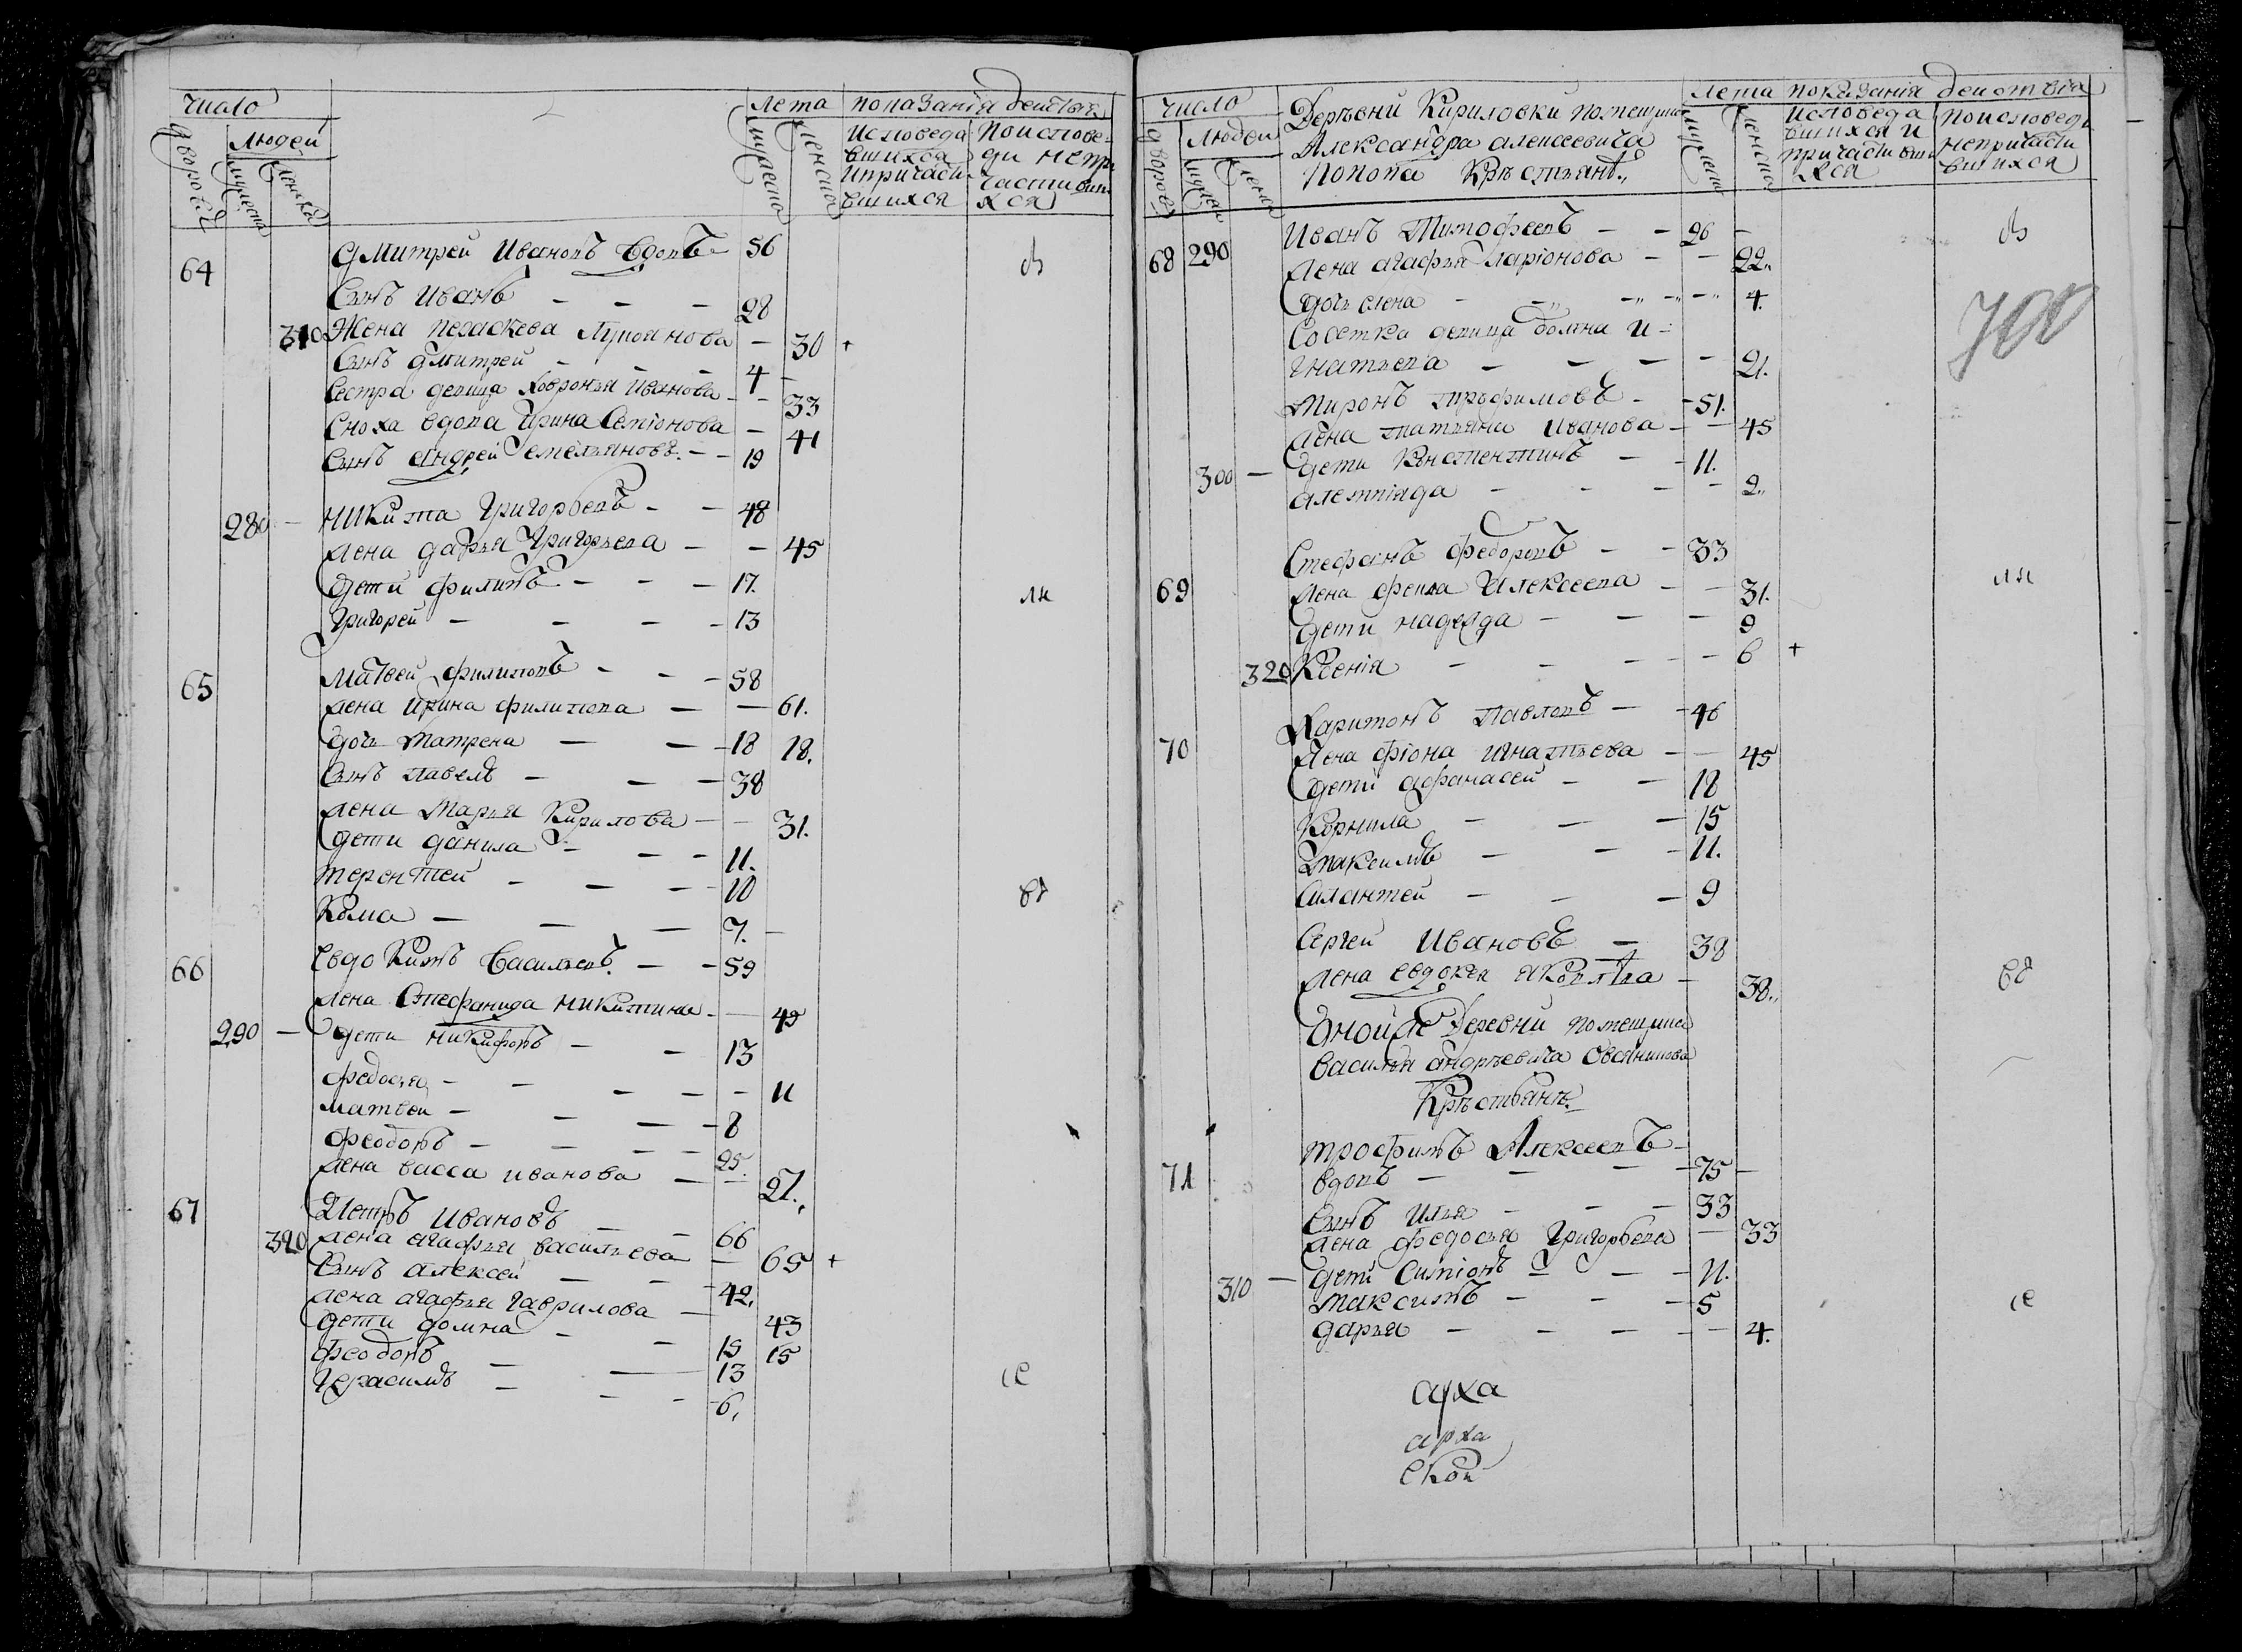 число
людей
лета
показанiя действъ
дворовъ
мужеска
женска
мужеска
женска
исповеда
вшихся
ипричасти
вшихся
поиспове-
ди непри
частивши
хся
64
Дмитрей Ивановъ вдовъ 56
Сынъ Иванъ - - - 28
310 Жена пелагкева Лукоянова - 30 +
Сынъ дмитрей - - - 4 -
Сестра девица Ховронья Иванова - - 33
Сноха вдова Ирина Семiонова - 41
Сынъ андрей емельяновъ - - 19
280 - Никита Григорьевъ - - 48
жена дарья Григорьева - - 45
дети филипъ - - - 17.
Григорей - - - - 13
65
Матвей филиповъ - - - 58
жена ирина филипова - - 61.
дочь матрена - - - 18 18.
Сынъ павелъ - - - 38
жена Марья Кирилова - - 31.
дети данила - - - 11.
терентей - - - - 10
Кузма - - - 7. -
66
Евдокимъ васильевъ. - - 59
жена Стефанида никитина - - 49
290 - дети никифоръ - - 13
федосья - - - - - 11
матвей - - - - 8
феодотъ - - - - 25.
жена васса иванова - - 27.
67
Петръ ивановъ - - - 66
320 жена агафья васильева - 65 +
Сынъ алексей - - - 42.
жена агафья гаврилова - 43
дети домна - - 15 15
феодотъ - - 13
Герасимъ - - - 6.
ли
се
число
людей
дворовъ
Деревни Кириловки помещика
Александра алексеевича
Попова Крестьянъ.
лета
показанiя действiя
исповеда
вшихся и
причастивши
хся
поисповеди
непричасти
вшихся
68 290
Иванъ Тимофеевъ - - 26 -
жена агафья ларiонова - - 22.
дочь елена - - - - - 4.
Советка девица домна и-
гнатьева - - - - 21.
Миронъ трофимовъ - - 51.
жена татьяна иванова - - 45
300 - дети Констентинъ - - 11.
алемпiяда - - - - 2.
Стефанъ федоровъ - - 33
69
жена фекла Алексеева - - 31.
дети надежда - - - 9
320 Ксенiя - - - - - 6 +
Харитонъ павловъ - - 46
70
жена фiона игнатьева - - 45
дети афанасей - - 18
Корнила - - - 15
Максимъ - - - 11.
Силантей - - - 9
Сергей ивановъ - 38
жена евдокея яковлева - 38.
Оной же Деревни помещика
василья андреевича Овсяникова
Крестьяне.
71
трофимъ Алексеевъ -
вдовъ - - - - 75 -
Сынъ илья - - - 33
жена федосья Григорьева - 33
310 - дети Симiонъ - - - 11.
Максимъ - - - 5
дарья - - - - - 4.
700
ли
се
арха
арха
ской